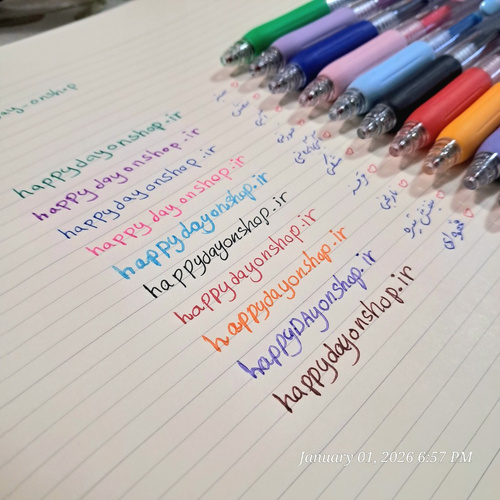 happydayonshop.ir
happydayonshop.ir
happydayonshop.ir
happydayonshop.ir
happydayonshop.ir
happydayonshop.ir
happydayonshop.ir
happydayonshop.ir
happyDAyonshop.ir
happydayonshop.ir
سبز
بنفش
آبی
صورتی
مشکی
قرمز
نارنجی
بنفش تیره
قهوه‌ای
January 01, 2026 6:57 PM